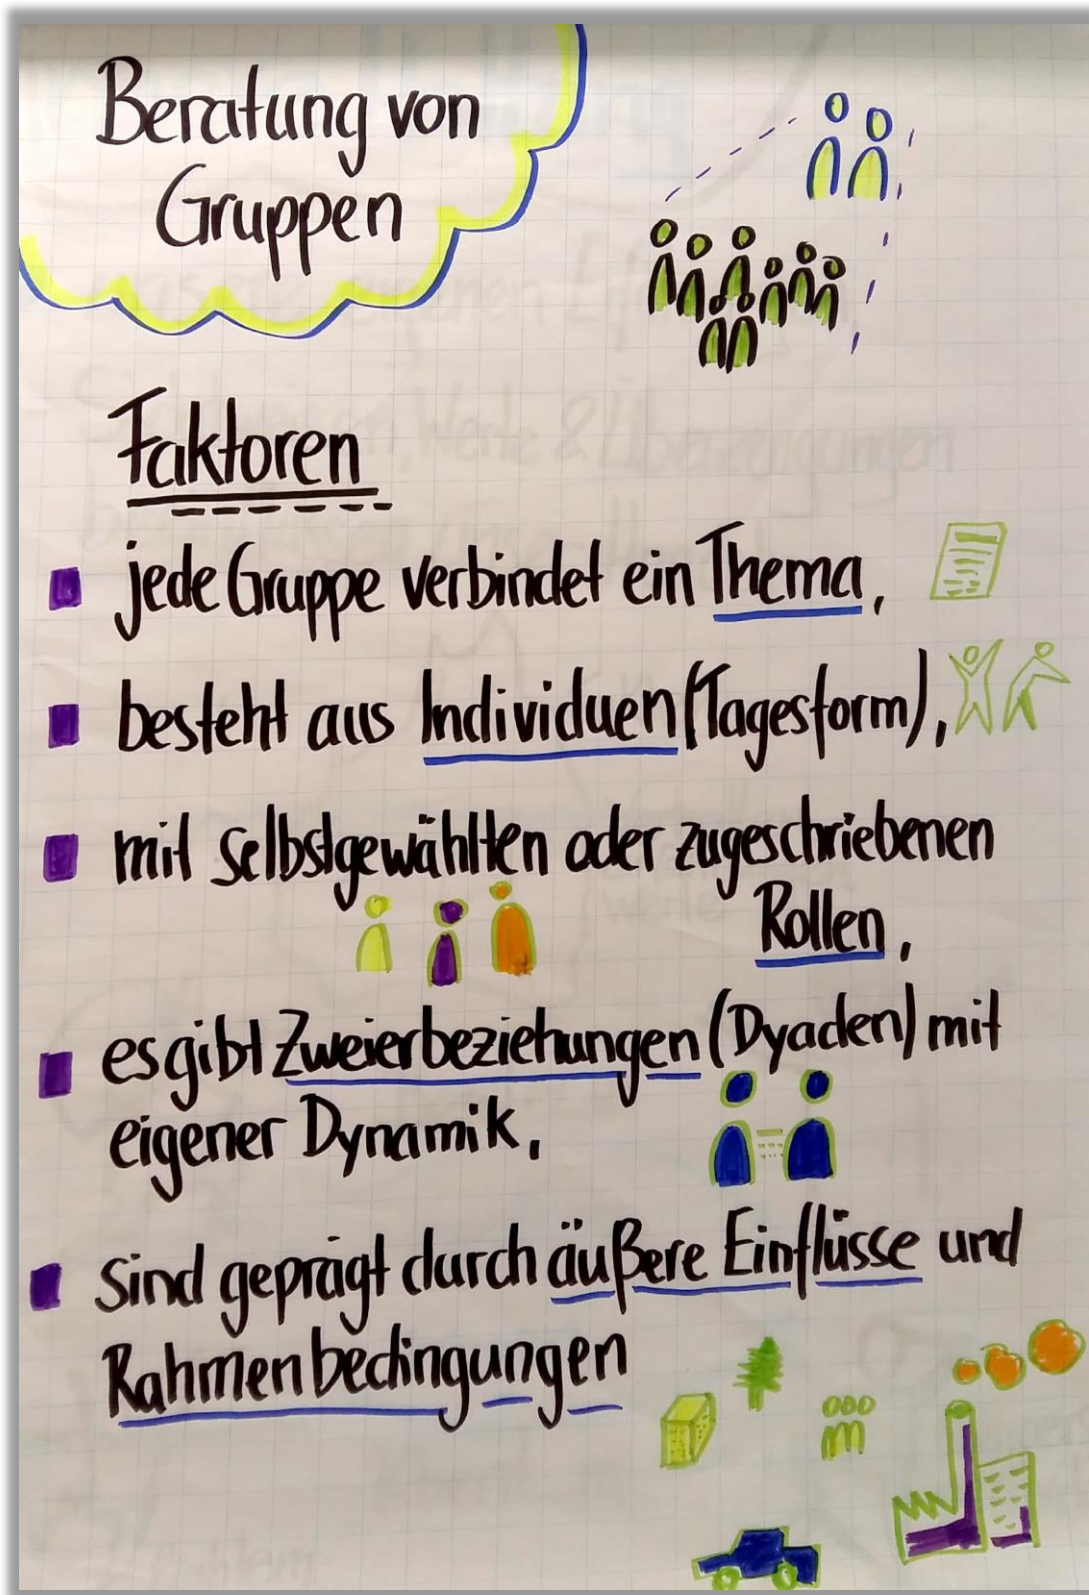 Beratung von
Gruppen
Faktoren
jede Gruppe verbindet ein Thema,
besteht aus Individuen (Tagesform),
mit selbstgewählten oder zugeschriebenen
Rollen,
es gibt Zweierbeziehungen (Dyaden) mit
eigener Dynamik,
sind geprägt durch äußere Einflüsse und
Rahmenbedingungen